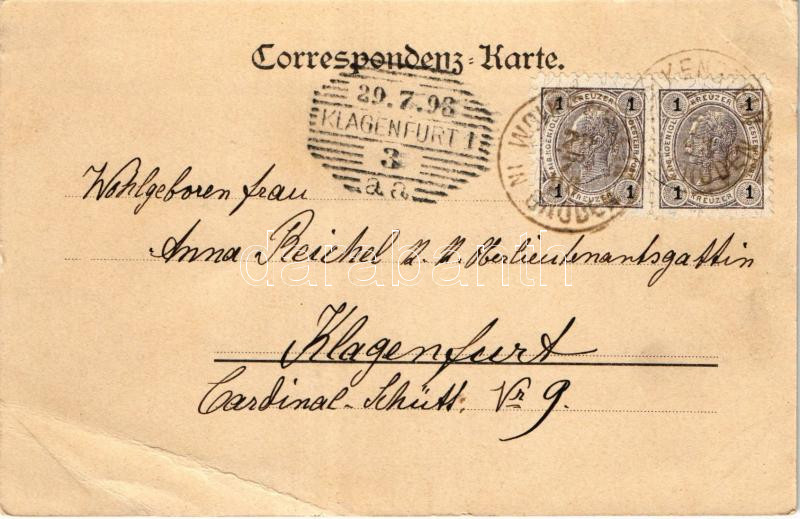 Correspondenz-Karte.
29.7.98
KLAGENFURT 1
3
a a
1 KREUZER 1
1 KREUZER 1
1 KREUZER 1
1 KREUZER 1
Wohlgeboren Frau
Anna Reichel k. k. Oberlieutenantsgattin
darabanth
Klagenfurt
Cardinal-Schütt. Nr 9.